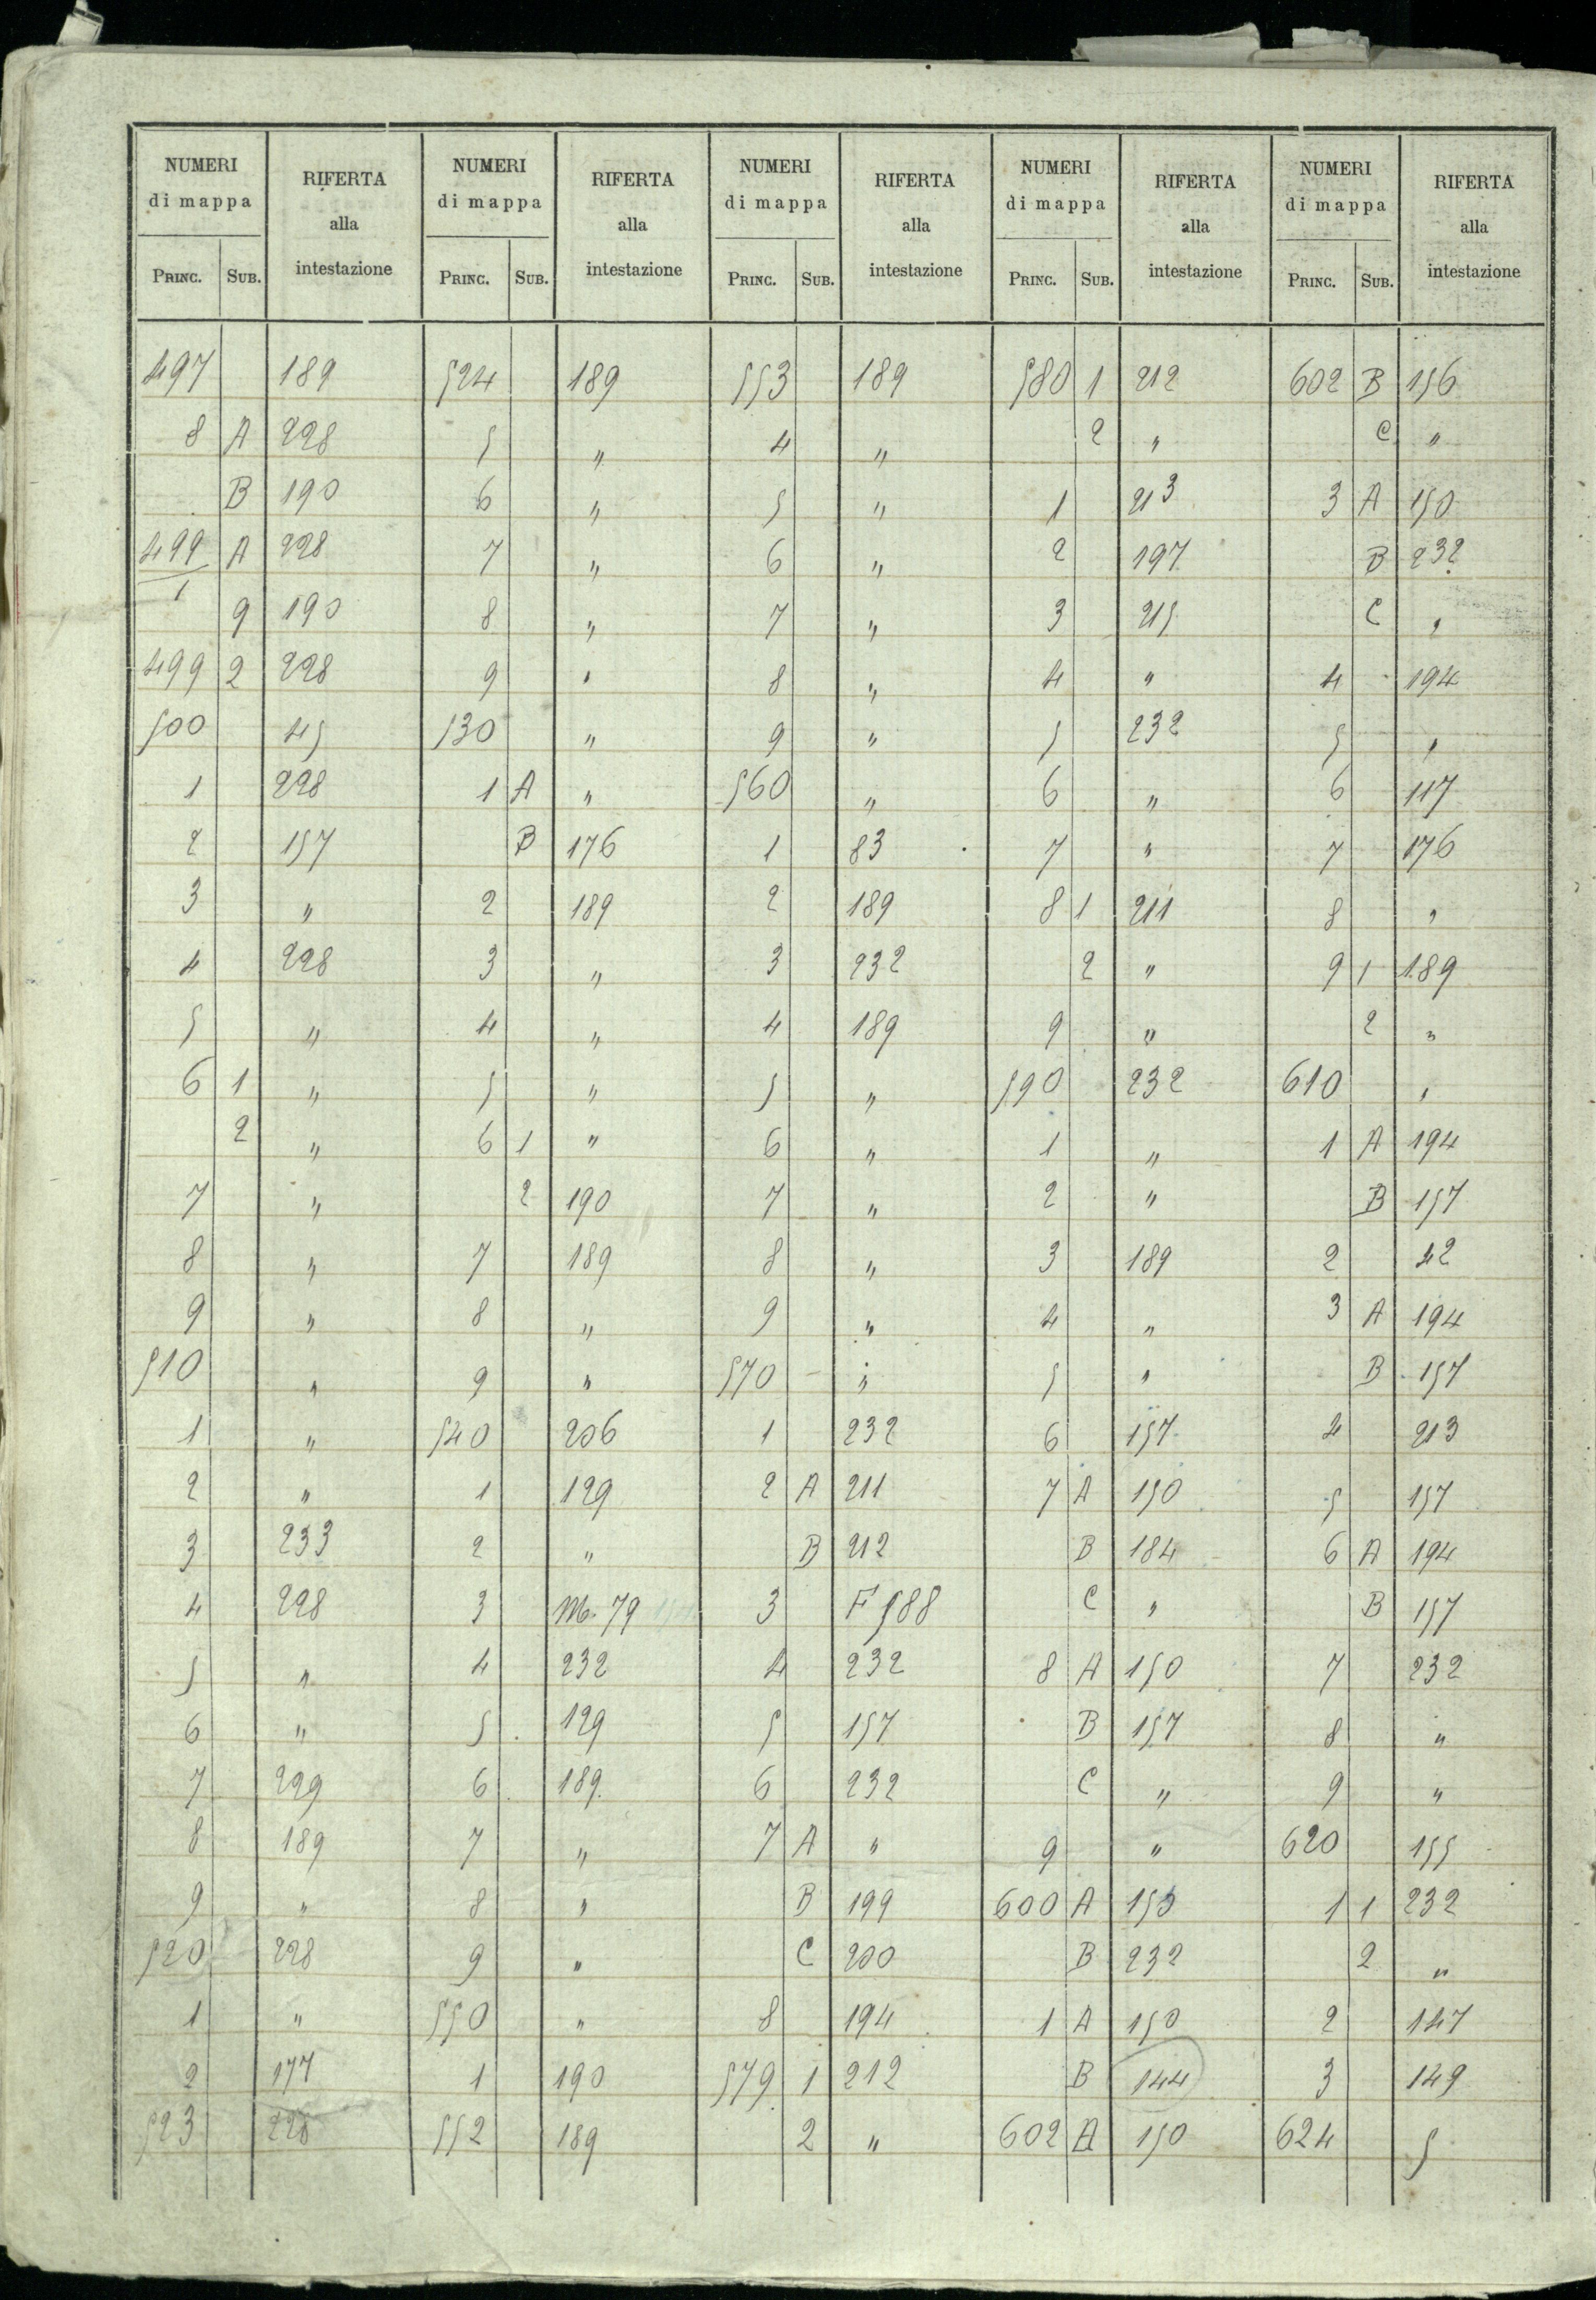 NUMERI di mappa RIFERTA alla intestazione NUMERI di mappa RIFERTA alla intestazione NUMERI di mappa RIFERTA alla intestazione NUMERI di mappa RIFERTA alla intestazione NUMERI di mappa RIFERTA alla intestazione
PRINC. SUB. PRINC. SUB. PRINC. SUB. PRINC. SUB. PRINC. SUB.
497 189 524 189 553 189 580 1 212 602 B 156
8 A 228 5 " 4 " 2 " C "
B 190 6 " 5 " 1 213 3 A 150
499/1 A 228 7 " 6 " 2 197 B 232
9 190 8 " 7 " 3 215 C "
499 2 228 9 " 8 " 4 " 4 194
500 45 530 " 9 " 5 232 5 "
1 228 1 A " 560 " 6 " 6 117
2 157 B 176 1 83 7 " 7 176
3 " 2 189 2 189 8 1 211 8 "
4 228 3 " 3 232 2 " 9 1 189
5 " 4 " 4 189 9 " 2 "
6 1 " 5 " 5 " 590 232 610 "
2 " 6 1 " 6 " 1 " 1 A 194
7 " 2 190 7 " 2 " B 157
8 " 7 189 8 " 3 189 2 42
9 " 8 " 9 " 4 " 3 A 194
510 " 9 " 570 " 5 " B 157
1 " 540 206 1 232 6 157 4 213
2 " 1 129 2 A 211 7 A 150 5 157
3 233 2 " B 212 B 184 6 A 194
4 228 3 M. 79 3 F 588 C " B 157
5 " 4 232 4 232 8 A 150 7 232
6 " 5 129 5 157 B 157 8 "
7 229 6 189 6 232 C " 9 "
8 189 7 " 7 A " 9 " 620 155
9 " 8 " B 199 600 A 150 1 1 232
520 228 9 " C 200 B 232 2 "
1 " 550 " 8 194 1 A 150 2 147
2 177 1 190 579 1 212 B 144 3 149
523 228 552 189 2 " 602 A 150 624 5